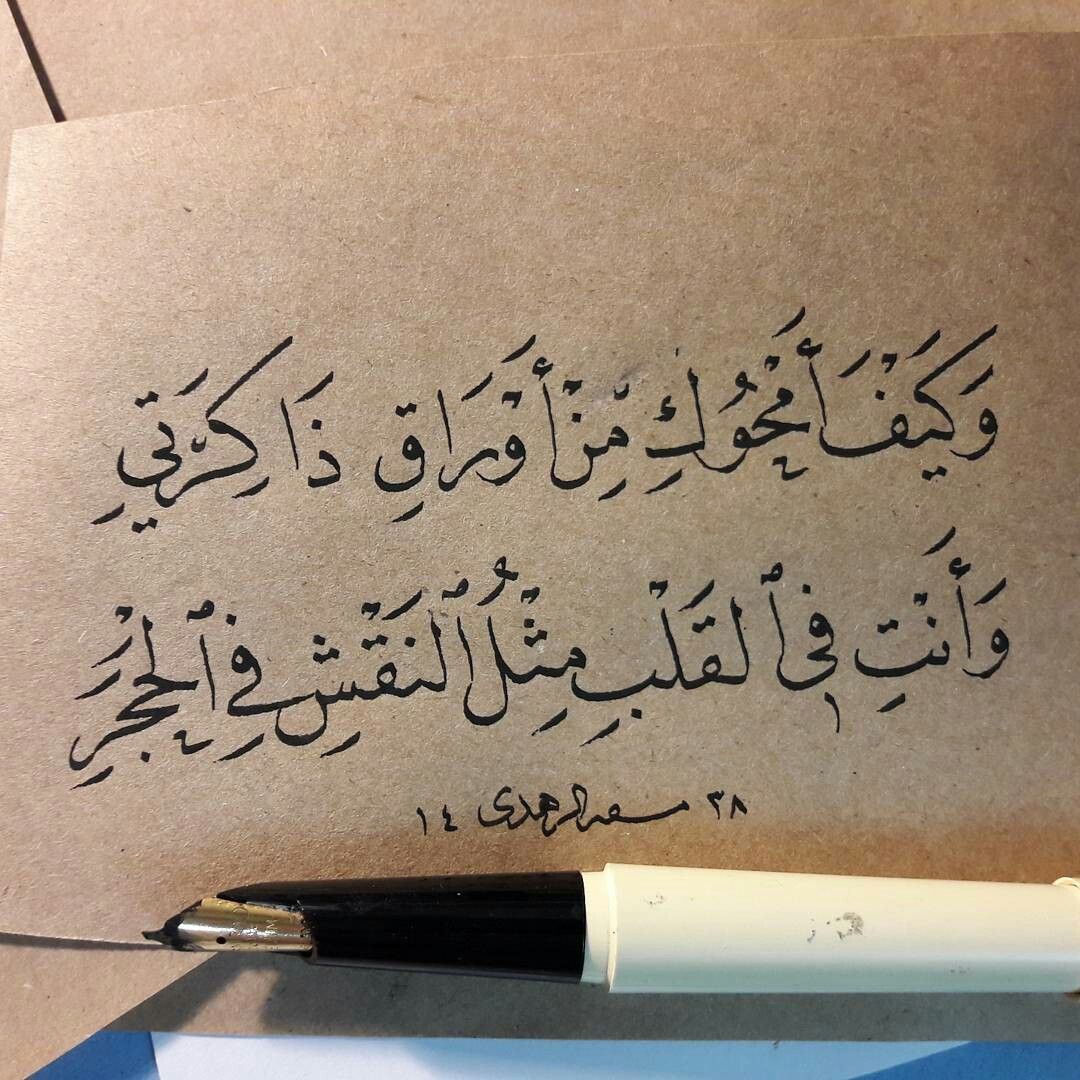 وَكَيْفَ أَمْحُوكِ مِّنْ أَوْرَاقِ ذَاكِرَتِي
وَأَنْتِ فِي ٱلْقَلْبِ مِثْلُ ٱلنَّقْشِ فِي ٱلْحَجَرِ
٣٨ ١٤